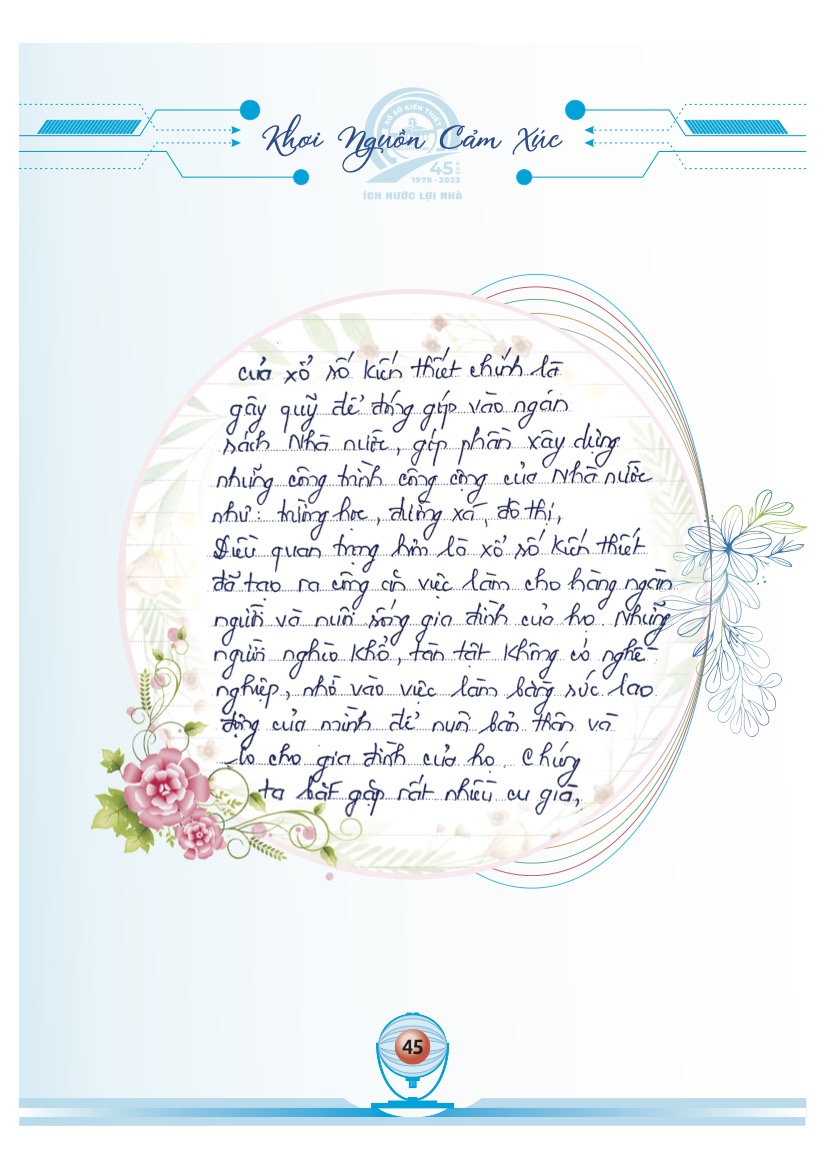 Khơi Nguồn Cảm Xúc
XỔ SỐ KIẾN THIẾT
45 NĂM
1978 - 2023
ÍCH NƯỚC LỢI NHÀ
của xổ số kiến thiết chính là
gây quỹ để đóng góp vào ngân
sách Nhà nước, góp phần xây dựng
những công trình công cộng của Nhà nước
như: trường học, đường xá, đô thị,
Điều quan trọng hơn là xổ số kiến thiết
đã tạo ra công ăn việc làm cho hàng ngàn
người và nuôi sống gia đình của họ. Những
người nghèo khổ, tàn tật không có nghề
nghiệp, nhờ vào việc làm bằng sức lao
động của mình để nuôi bản thân và
lo cho gia đình của họ. Chúng
ta bắt gặp rất nhiều cụ già,
45